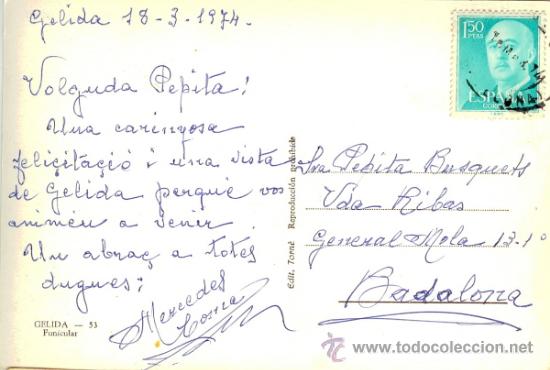 Gelida 18-3-1974.
Volguda Pepita!
Una carinyosa
felicitació i una vista
de Gelida perquè vos
animéu a venir.
Un abraç a totes
dugues;
Mercedes
GELIDA — 53
Funicular
Edit. Torné Reproducción prohibida
1'50
PTAS
ESPAÑA
CORREOS
Sra Pepita Busquets
Vda Ribas
General Mola 13-1º
Badalona
www.todocoleccion.net